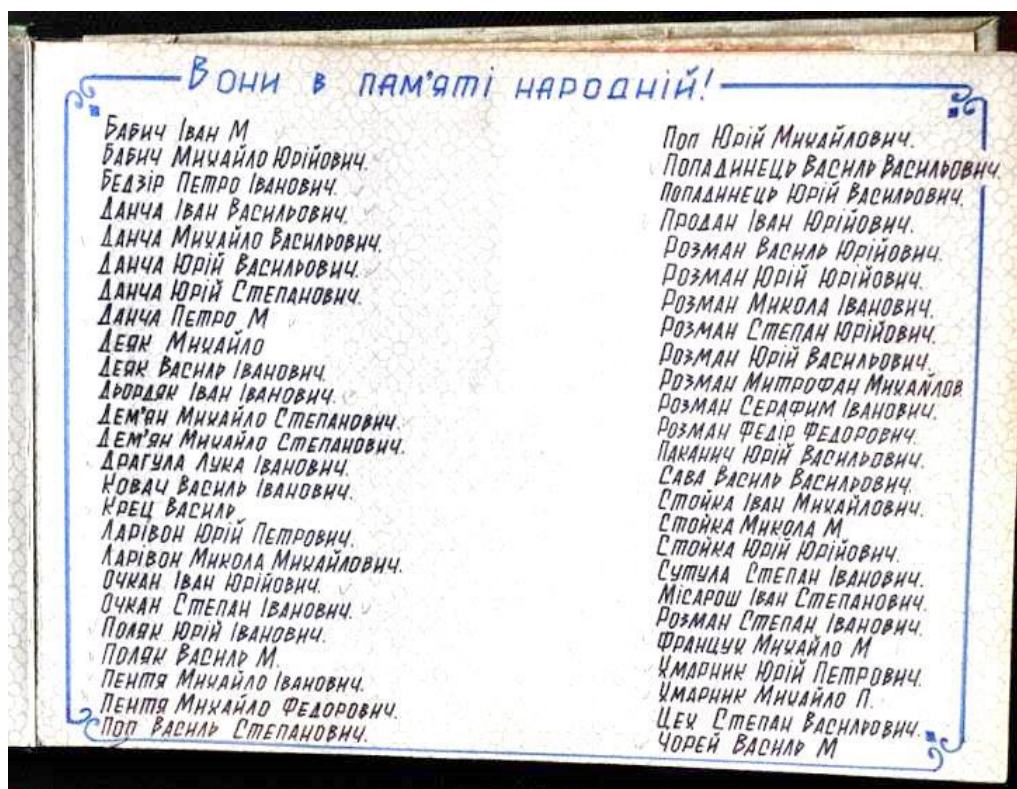 Вони в пам'яті народній!
Бабич Іван М
Бабич Михайло Юрійович.
Бедзір Петро Іванович.
Данча Іван Васильович.
Данча Михайло Васильович.
Данча Юрій Васильович.
Данча Юрій Степанович.
Данча Петро М
Деяк Михайло
Деяк Василь Іванович.
Дьордяк Іван Іванович.
Дем'ян Михайло Степанович.
Дем'ян Михайло Степанович.
Драгула Лука Іванович.
Ковач Василь Іванович.
Крец Василь
Ларівон Юрій Петрович.
Ларівон Микола Михайлович.
Очкан Іван Юрійович.
Очкан Степан Іванович.
Поляк Юрій Іванович.
Поляк Василь М.
Пентя Михайло Іванович.
Пентя Михайло Федорович.
Поп Василь Степанович.
Поп Юрій Михайлович.
Попадинець Василь Васильович
Попадинець Юрій Васильович.
Продан Іван Юрійович.
Розман Василь Юрійович.
Розман Юрій Юрійович.
Розман Микола Іванович.
Розман Степан Юрійович.
Розман Юрій Васильович.
Розман Митрофан Михайлов
Розман Серафим Іванович.
Розман Федір Федорович.
Паканич Юрій Васильович.
Сава Василь Васильович.
Стойка Іван Михайлович.
Стойка Микола М
Стойка Юрій Юрійович.
Сутула Степан Іванович.
Місарош Іван Степанович.
Розман Степан Іванович.
Францух Михайло М
Хмарник Юрій Петрович.
Хмарник Михайло П.
Цех Степан Васильович.
Чорей Василь М